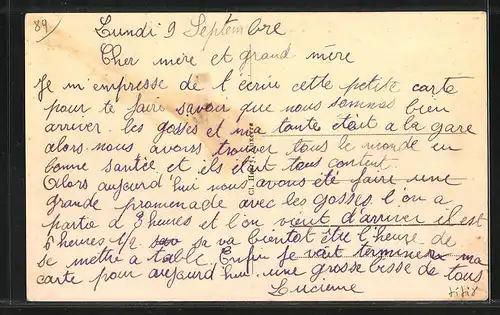 89
Lundi 9 Septembre
Cher mere et grand mère
Je m'empresse de t'ecrire cette petite carte
pour te faire savoir que nous sommes bien
arriver. les gosses et ma tante était a la gare
alors nous avons trouver tous le monde en
bonne santée et ils était tous content.
Alors aujourd hui nous avons été faire une
grande promenade avec les gosses l'on a
partie a 3 heures et l'on vient d'arriver il est
5 heures 1/2 sa va bientot être l'heure de
se mettre a table. Enfin Je vait terminer ma
carte pour aujourd'hui. une grosse bisse de tous
Lucienne